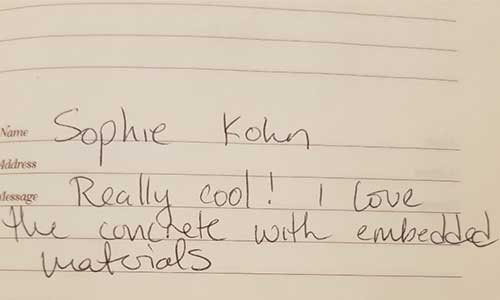 Name Sophie Kohn
Address
Message Really cool! I love
the concrete with embedded
materials